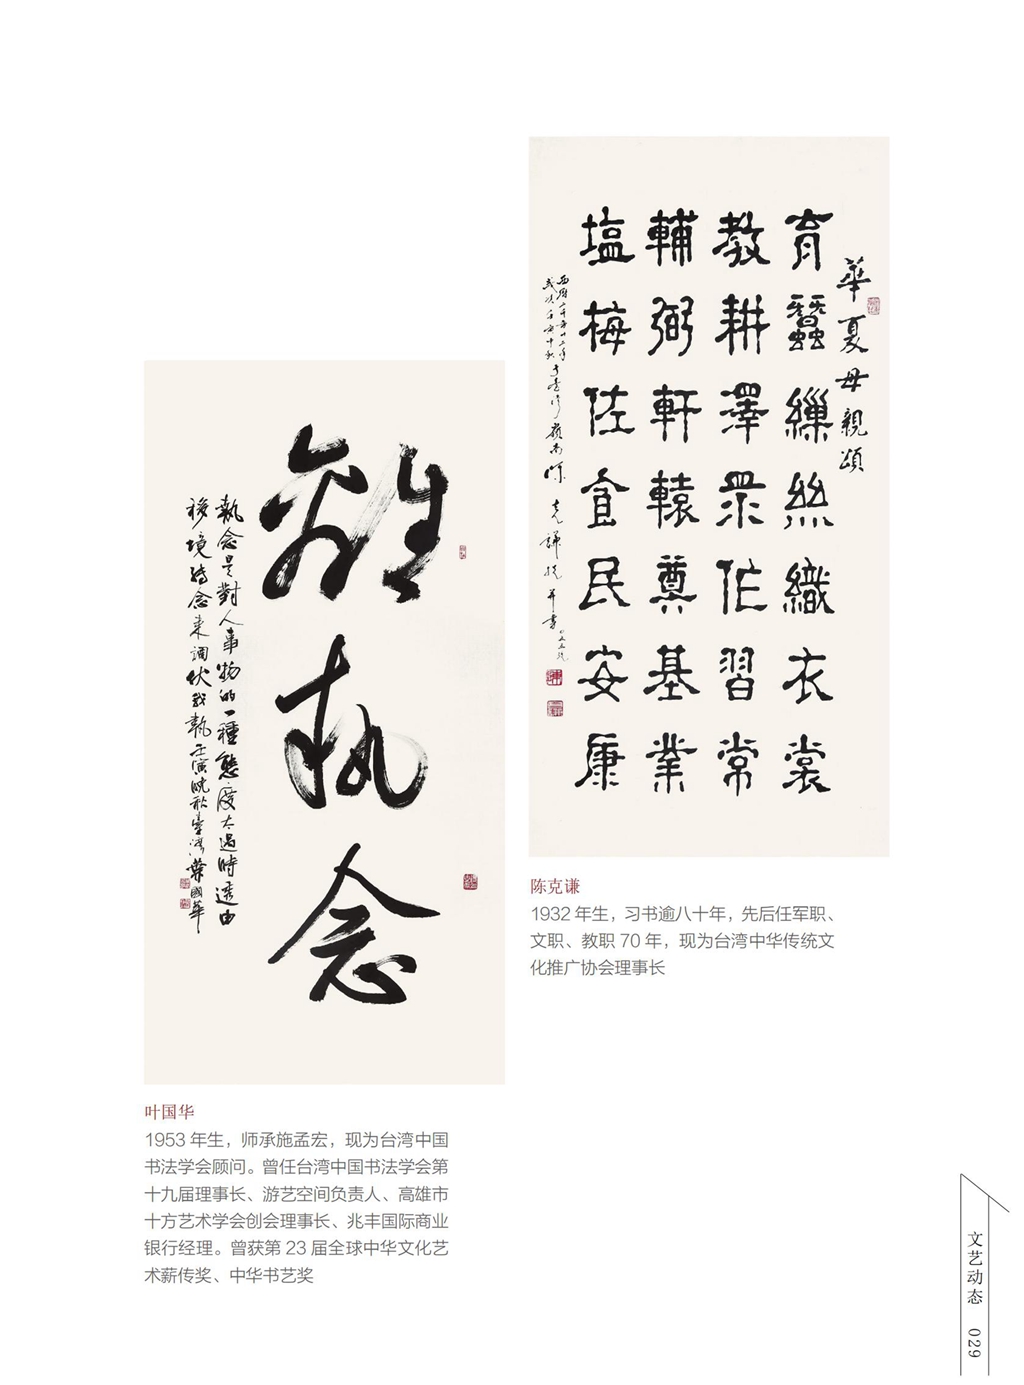 華夏母親頌
育蠶繅絲織衣裳
教耕澤眾作習常
輔弼軒轅奠基業
塩梅佐食民安康
陈克谦
1932 年生，习书逾八十年，先后任军职、
文职、教职 70 年，现为台湾中华传统文
化推广协会理事长
離執念
執念是對人事物的一種態度太過時透由
移境轉念來調伏我執壬寅晚秋臺灣葉國華
叶国华
1953 年生，师承施孟宏，现为台湾中国
书法学会顾问。曾任台湾中国书法学会第
十九届理事长、游艺空间负责人、高雄市
十方艺术学会创会理事长、兆丰国际商业
银行经理。曾获第 23 届全球中华文化艺
术薪传奖、中华书艺奖
文艺动态 029